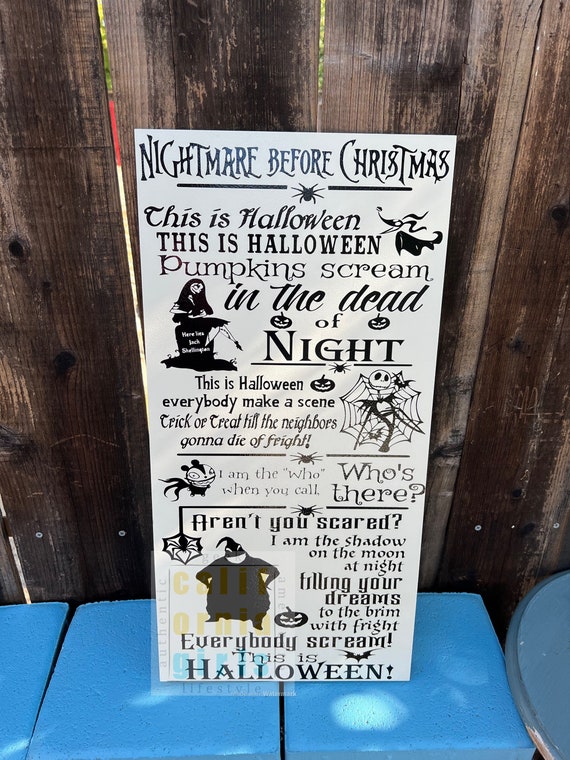 NIGHTMARE BEFORE CHRISTMAS
This is Halloween
THIS IS HALLOWEEN
Pumpkins scream
in the dead
of
NIGHT
Here lies
Jack
Shellington
This is Halloween
everybody make a scene
Trick or Treat till the neighbors
gonna die of fright!
I am the "Who"
when you call,
Who's
there?
Aren't you scared?
I am the shadow
on the moon
at night
filling your
dreams
to the brim
with fright
Everybody scream!
This is
HALLOWEEN!
authentic
calif
ornia
girl
lifestyle
Watermark